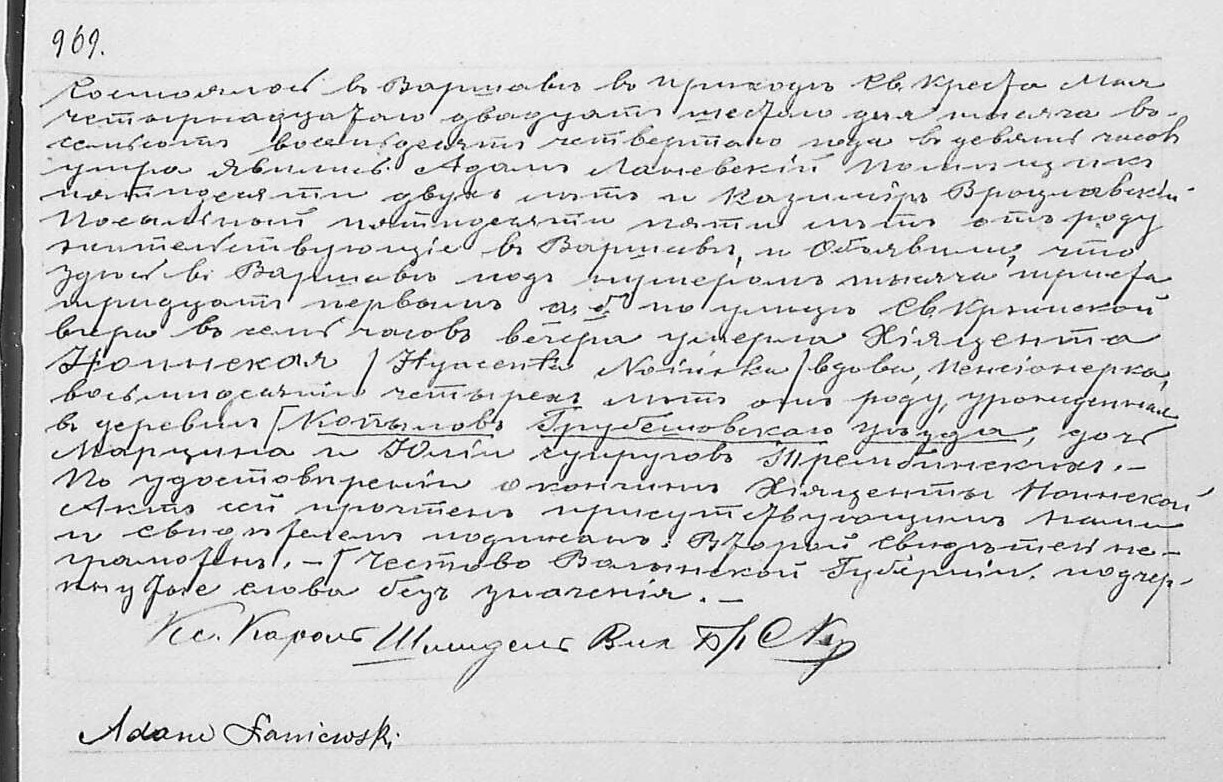 969.
Состоялось въ Варшавѣ въ приходѣ Св. Креста Мая
четырнадцатаго двадцать шестаго дня тысяча во-
семьсотъ восемьдесятъ четвертаго года въ девять часовъ
утра. Явились: Адамъ
пятидесяти двухъ лѣтъ и Казимiръ Вроцлавскiй
Посыльный пятидесяти пяти лѣтъ отъ роду
жительствующiе въ Варшавѣ, и Объявили, что
здѣсь въ Варшавѣ подъ нумеромъ тысяча триста
тридцать первымъ а, б по улицѣ Св. Крыжской
вчера въ семь часовъ вечера умерла Хiяцента
Ноинская /Hyacenta Noińska/ вдова, Пенсiонерка,
восьмидесяти четырехъ лѣтъ отъ роду, урожденная
въ деревнѣ [Копыловъ Грубешовскаго уѣзда, дочь
Марцина и Юлiи супруговъ Трембинскихъ. —
По удостовѣренiи о кончинѣ Хiяценты Ноинской
Актъ сей прочтенъ присутствующимъ Нами
и свидѣтелемъ подписанъ. Второй Свидѣтель не-
грамотенъ. — [Честово Волынской Губернiи. подчер-
кнутые слова безъ значенiя. —
Кс. Кароль Вик
Adam Łaniewski